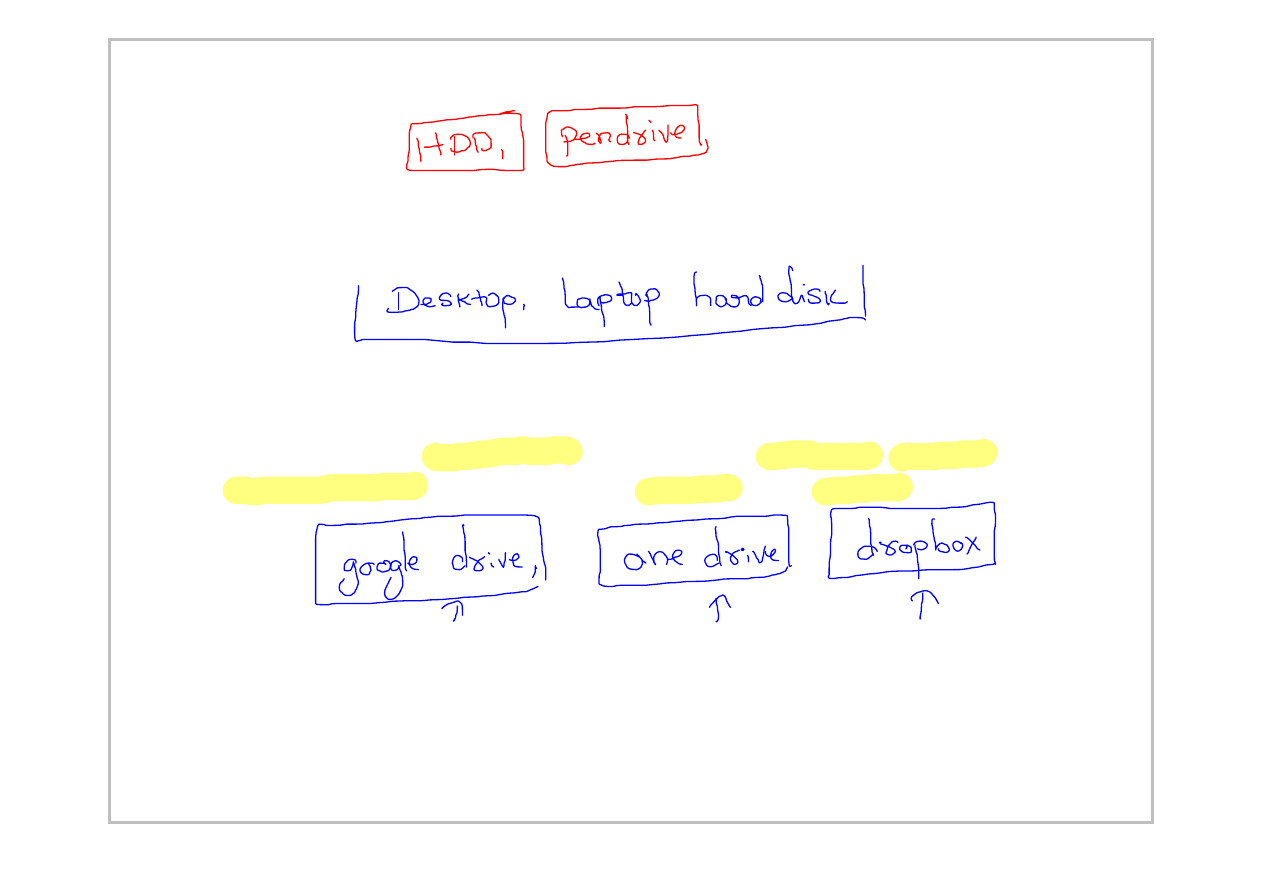 HDD, pendrive,
Desktop, Laptop hard disk
google drive, one drive dropbox